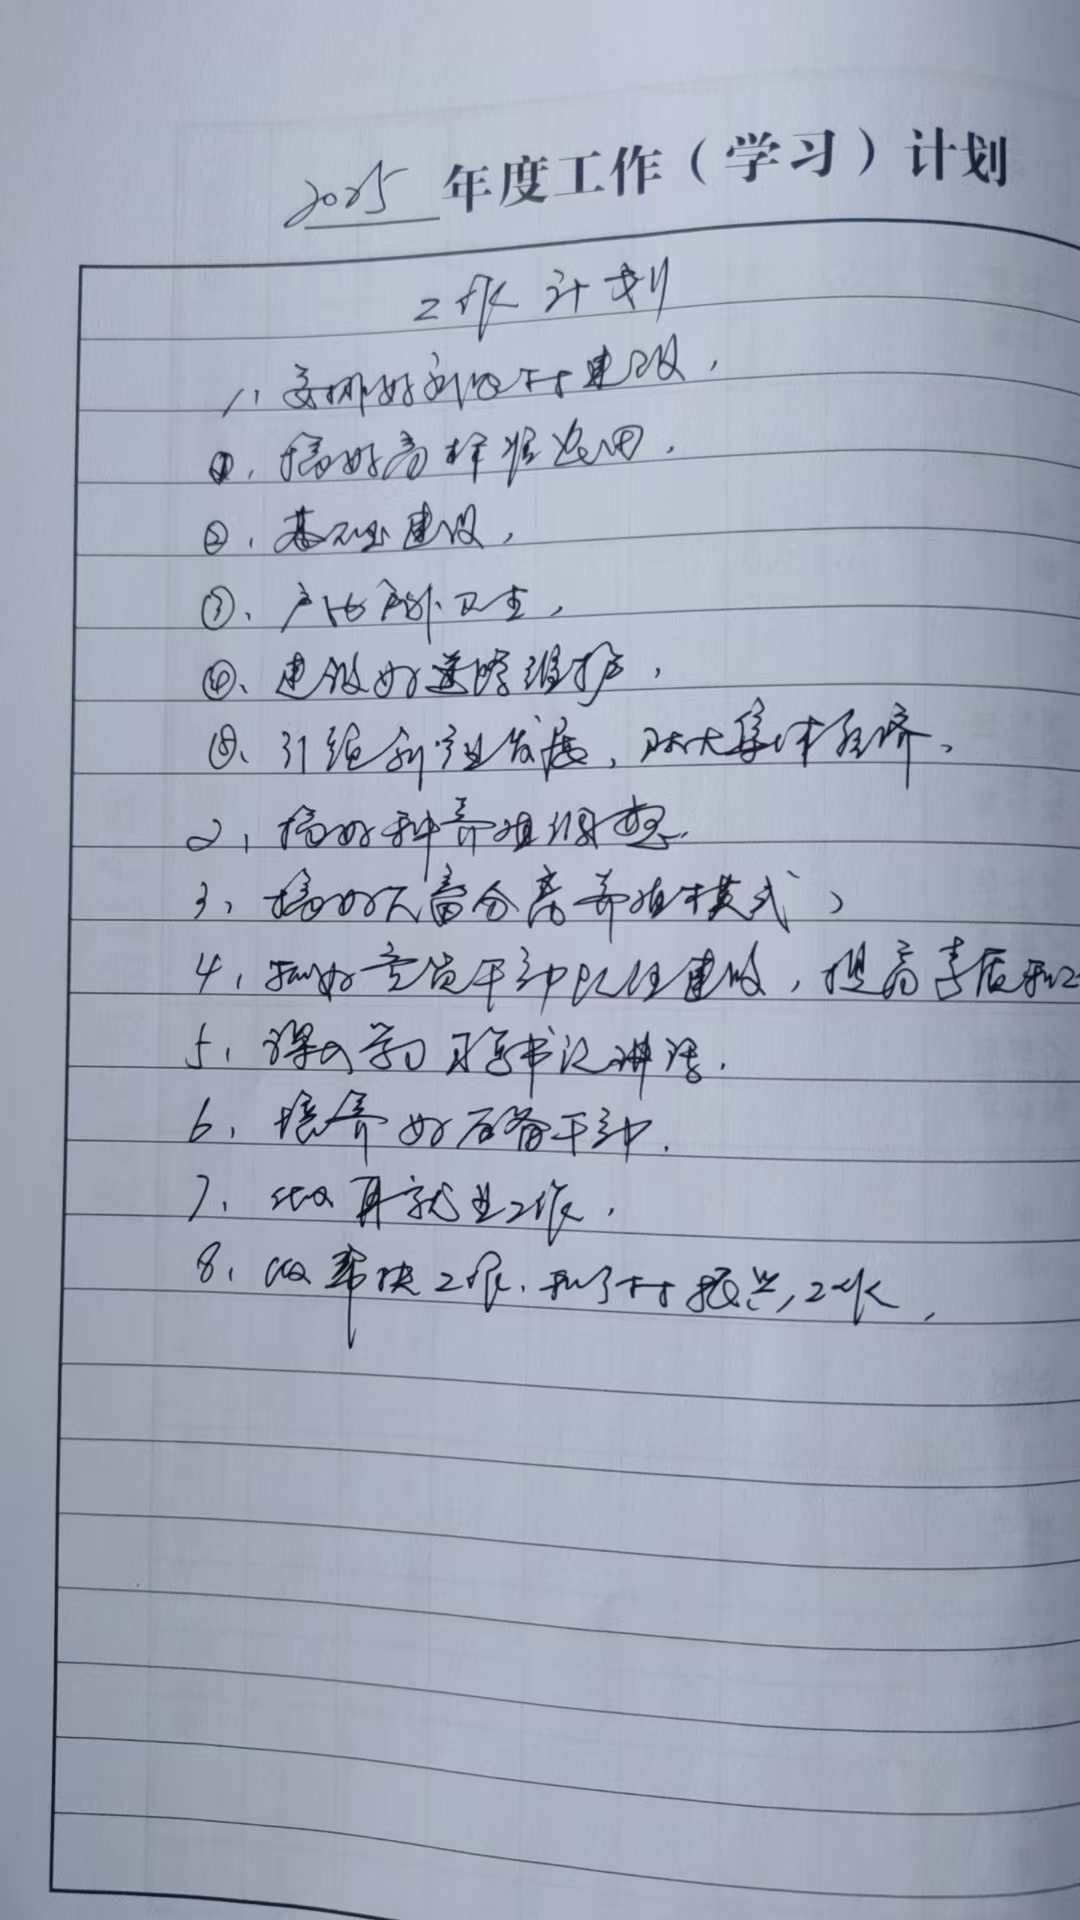 2025 年度工作（学习）计划
工作计划
1、安排好新农村建设，
①、搞好高标准农田．
②、基础建设，
③、户内户外卫生，
④、建设好道路维护，
⑤、引绝新产业发展，壮大集体经济、
2、搞好种养殖
3、搞好人畜分离养殖模式，
4、抓好党员干部队伍建设，提高素质和
5、深入学习习总书记讲话．
6、培养好后备干部．
7、做再就业工作．
8、做帮扶工作．和乡村振兴，工作，